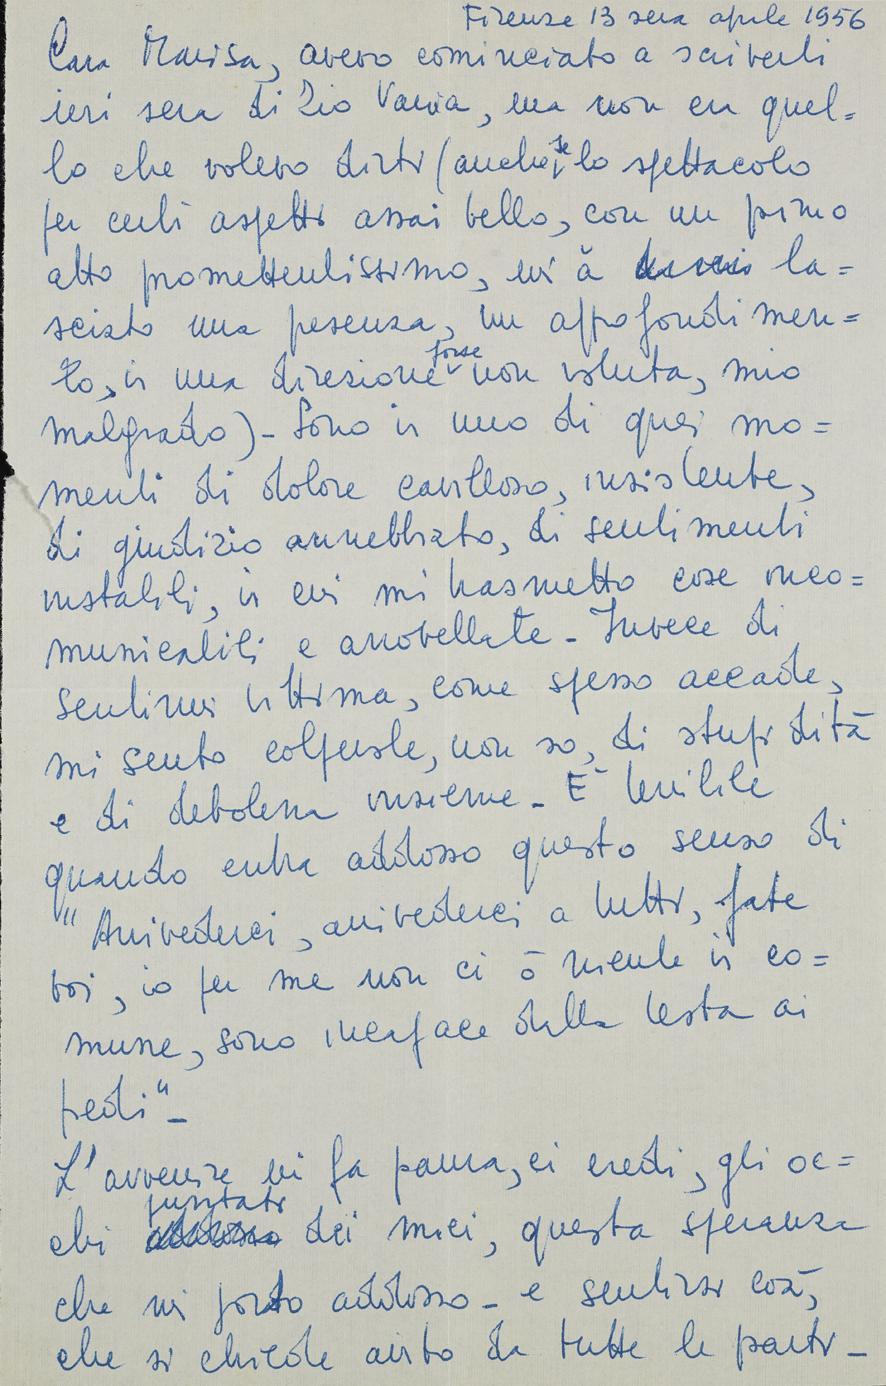 Firenze 13 sera aprile 1956
Cara Marisa, avevo cominciato a scriverti
ieri sera di Zio Vania, ma non era quel=
lo che volevo dirti (anche se lo spettacolo
per certi aspetti assai bello, con un primo
atto promettentissimo, mi à la=
sciato una pesenza, un approfondimen=
to, in una direzione forse non voluta, mio
malgrado) - Sono in uno di quei mo=
menti di dolore cavilloso, insistente,
di giudizio annebbiato, di sentimenti
instabili, in cui mi trasmetto cose inco=
municabili e arrovellate - Invece di
sentirmi vittima, come spesso accade,
mi sento colpevole, non so, di stupidità
e di debolezza insieme - È terribile
quando entra addosso questo senso di
"Arrivederci, arrivederci a tutti, fate
voi, io per me non ci ò niente in co=
mune, sono incapace dalla testa ai
piedi" -
L'avvenire mi fa paura, ci credi, gli oc=
chi puntati dei miei, questa speranza
che mi porto addosso - e sentirsi così,
che si chiede aiuto da tutte le parti -